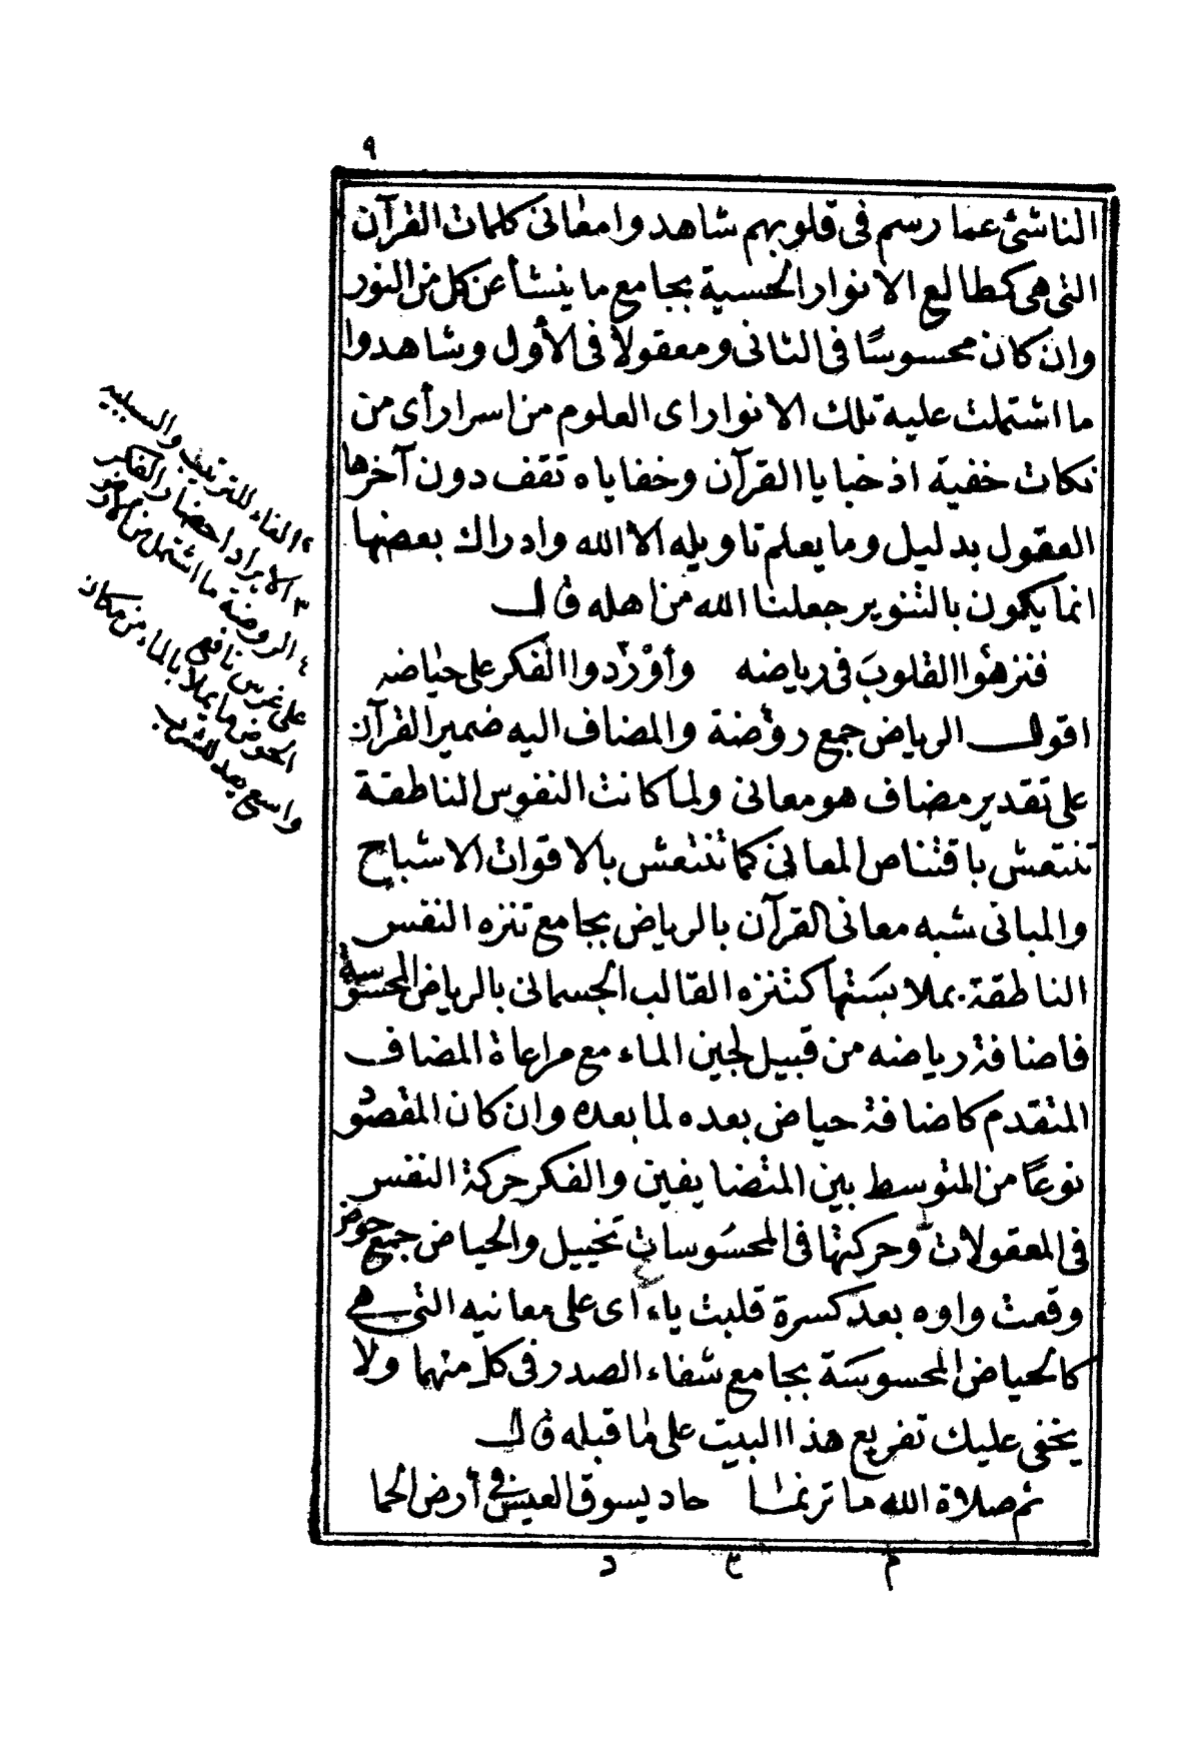 ٩
الناشئ عما رسم فى قلوبهم شاهدوا معانى كلمات القرآن
التى هى كمطالع الانوار الحسية بجامع ما ينشأ عن كل من النور
وان كان محسوسًا فى الثانى ومعقولا فى الأول وشاهدوا
ما اشتملت عليه تلك الانوار اى العلوم من اسرار أى من
نكات خفية اذ خبايا القرآن وخفاياه تقف دون آخرها
العقول بدليل وما يعلم تاويله الا الله وادراك بعضها
انما يكون بالتنوير جعلنا الله من اهله قال
فنزهوا القلوبَ فى رياضه وأوْرَدوا الفكر على حياضه
اقول الرياض جمع روضة والمضاف اليه ضمير القرآن
على تقدير مضاف هو معانى ولما كانت النفوس الناطقة
تنتعش باقتناص المعانى كما تنتعش بالاقوات الاشباح
والمبانى شبه معانى القرآن بالرياض بجامع تنزه النفس
الناطقة بملابستها كتنزه القالب الجسمانى بالرياض المحسوسة
فاضافة رياضه من قبيل لجين الماء مع مراعاة المضاف
المتقدم كاضافة حياض بعده لما بعده وان كان المقصود
نوعًا من المتوسط بين المتضايفين والفكر حركة النفس
فى المعقولات وحركتها فى المحسُوسات تخييل والحياض جمع حوض
وقعت واوه بعد كسرة قلبت ياء اى على معانيه التى هى
كالحياض المحسوسَة بجامع شفاء الصدر فى كل منهما ولا
يخفى عليك تفريع هذا البيت على ما قبله قال
ثم صلاة الله ما ترنما حاد يسوق العيس فى أرض الحما
م ع د
٢ الفاء للترتيب والسببية
٣ الايراد احضار الفكر
٤ الروضة ما اشتمل من الارض
على غرس نافع
الحوض ما يملأ بالماء من مكان
واسع يعد للشرب